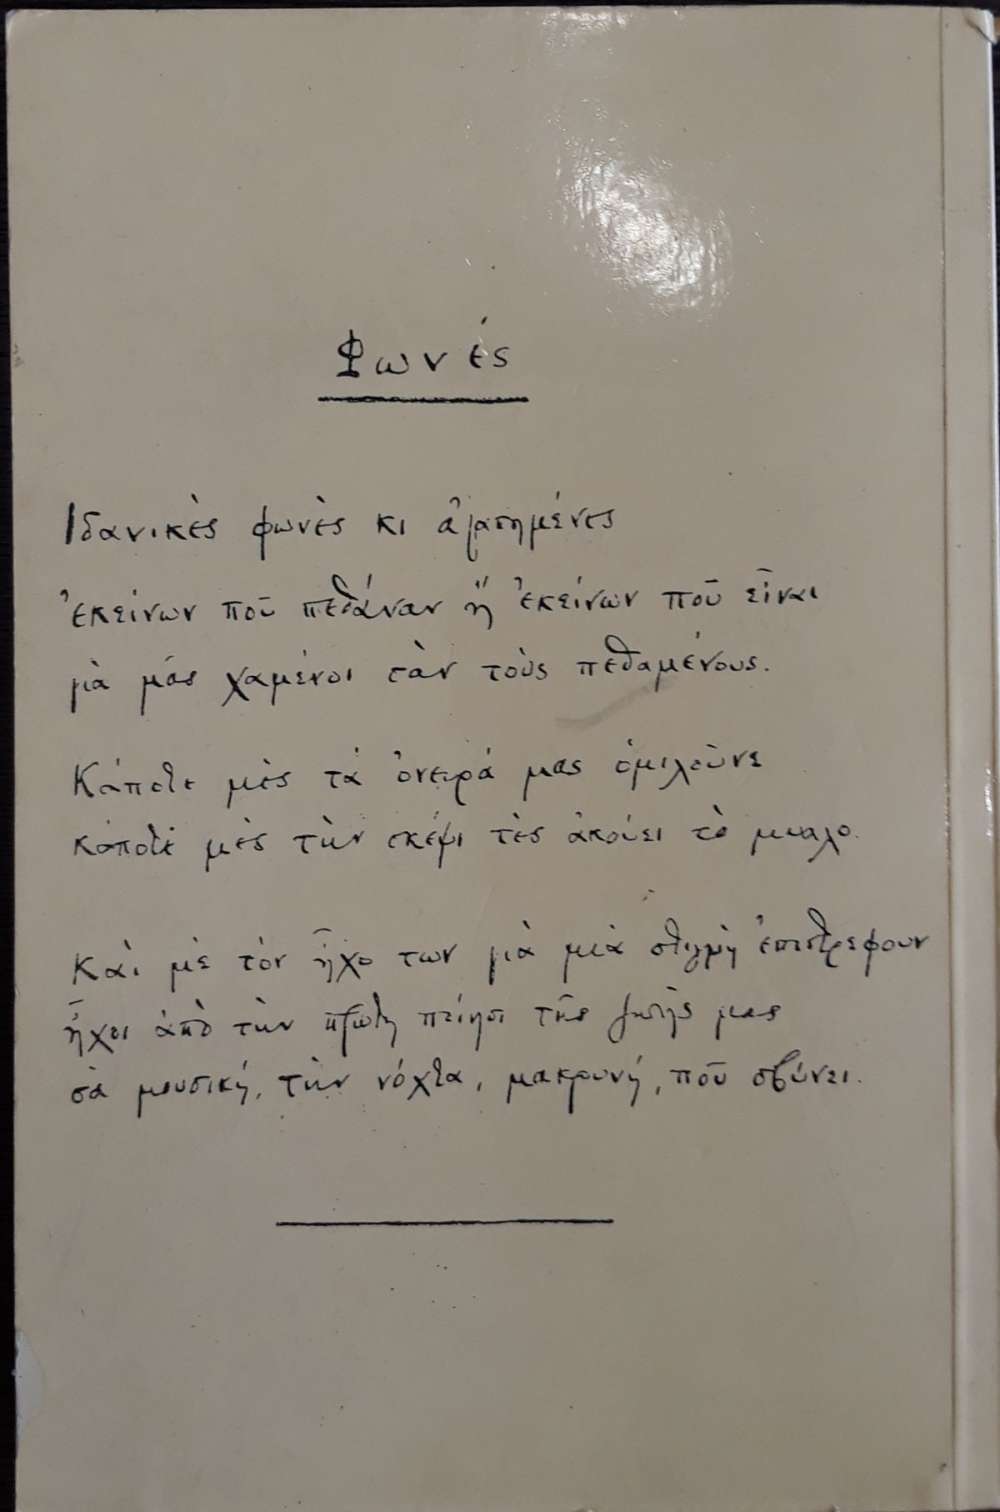 Φωνές
Ιδανικὲς φωνὲς κι ἀγαπημένες
ἐκείνων ποῦ πεθάναν ἢ ἐκείνων ποῦ εἶναι
γιὰ μᾶς χαμένοι σὰν τοὺς πεθαμένους.
Κάποτε μὲς τὰ ὄνειρά μας ὁμιλοῦνε
κάποτε μὲς τὴν σκέψι τὲς ἀκούει τὸ μυαλο.
Καὶ μὲ τὸν ἦχο των γιὰ μιὰ στιγμὴ ἐπιστρεφουν
ἦχοι ἀπὸ τὴν πρώτη ποίησι τῆς ζωῆς μας
σὰ μουσική, τὴν νύχτα, μακρυνή, ποῦ σβύνει.